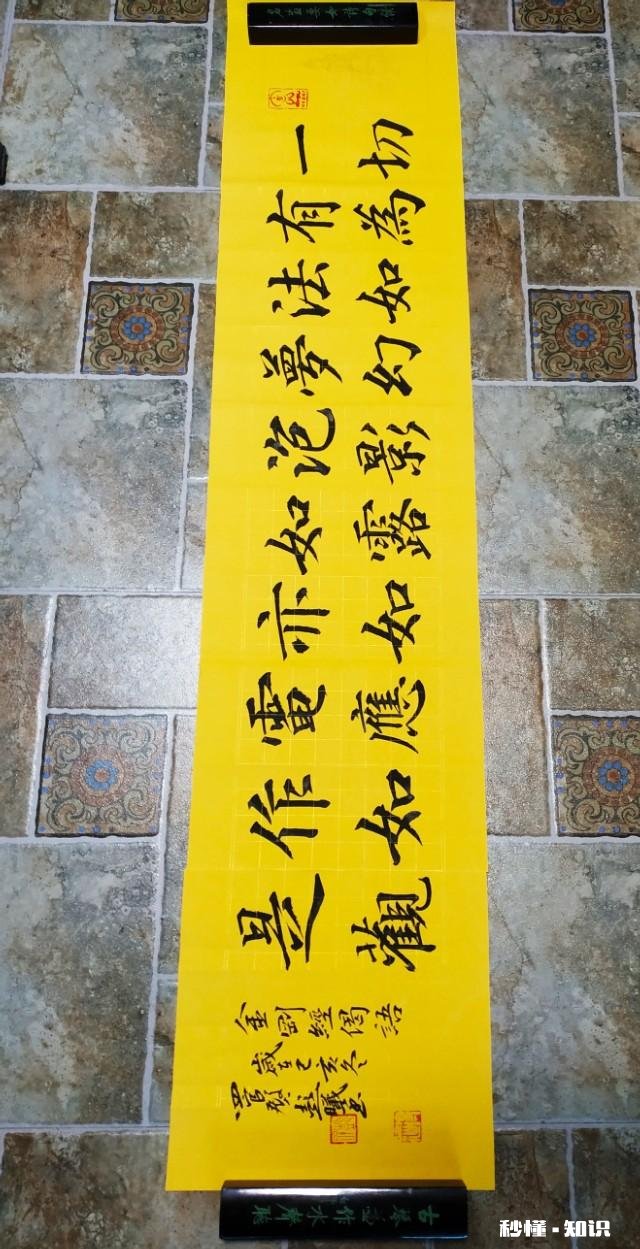 一切
有為
法如
夢幻
泡影
如露
亦如
電應
作如
是觀
金剛經偈語
歲己亥冬
古琴兼作水聲聽
秒懂·知识